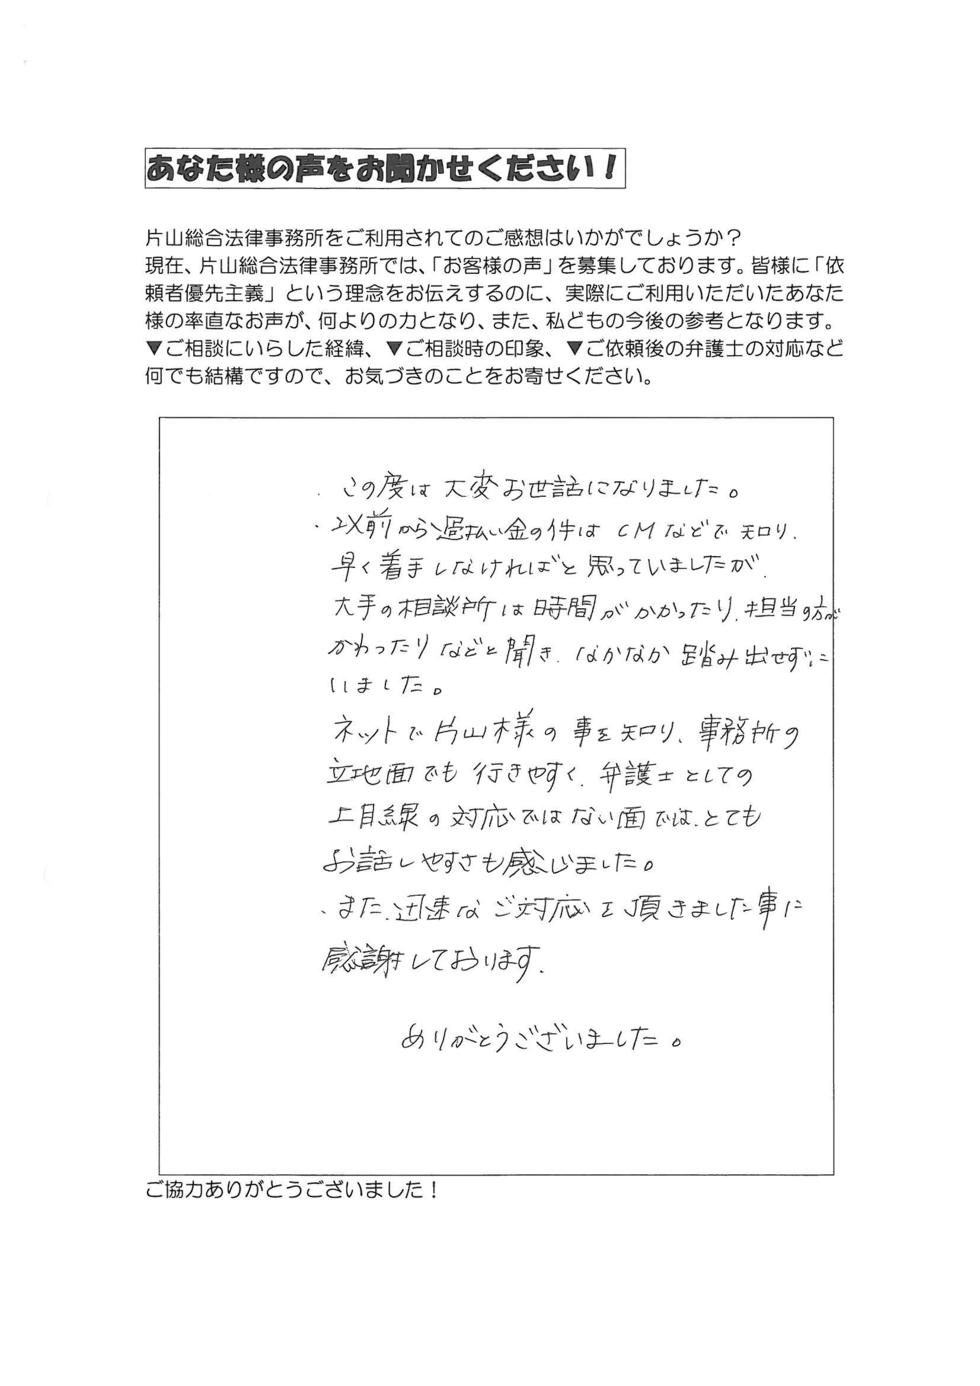 あなた様の声をお聞かせください！
片山総合法律事務所をご利用されてのご感想はいかがでしょうか？
現在、片山総合法律事務所では、「お客様の声」を募集しております。皆様に「依
頼者優先主義」という理念をお伝えするのに、実際にご利用いただいたあなた
様の率直なお声が、何よりの力となり、また、私どもの今後の参考となります。
▼ご相談にいらした経緯、▼ご相談時の印象、▼ご依頼後の弁護士の対応など
何でも結構ですので、お気づきのことをお寄せください。
・この度は大変お世話になりました。
・以前から過払い金の件はCMなどで知り、
早く着手しなければと思っていましたが、
大手の相談所は時間がかかったり、担当の方が
かわったりなどと聞き、なかなか踏み出せずに
いました。
ネットで片山様の事を知り、事務所の
立地面でも行きやすく、弁護士としての
上目線の対応ではない面では、とても
お話しやすさも感じました。
・また、迅速なご対応を頂きました事に
感謝しております。
ありがとうございました。
ご協力ありがとうございました！